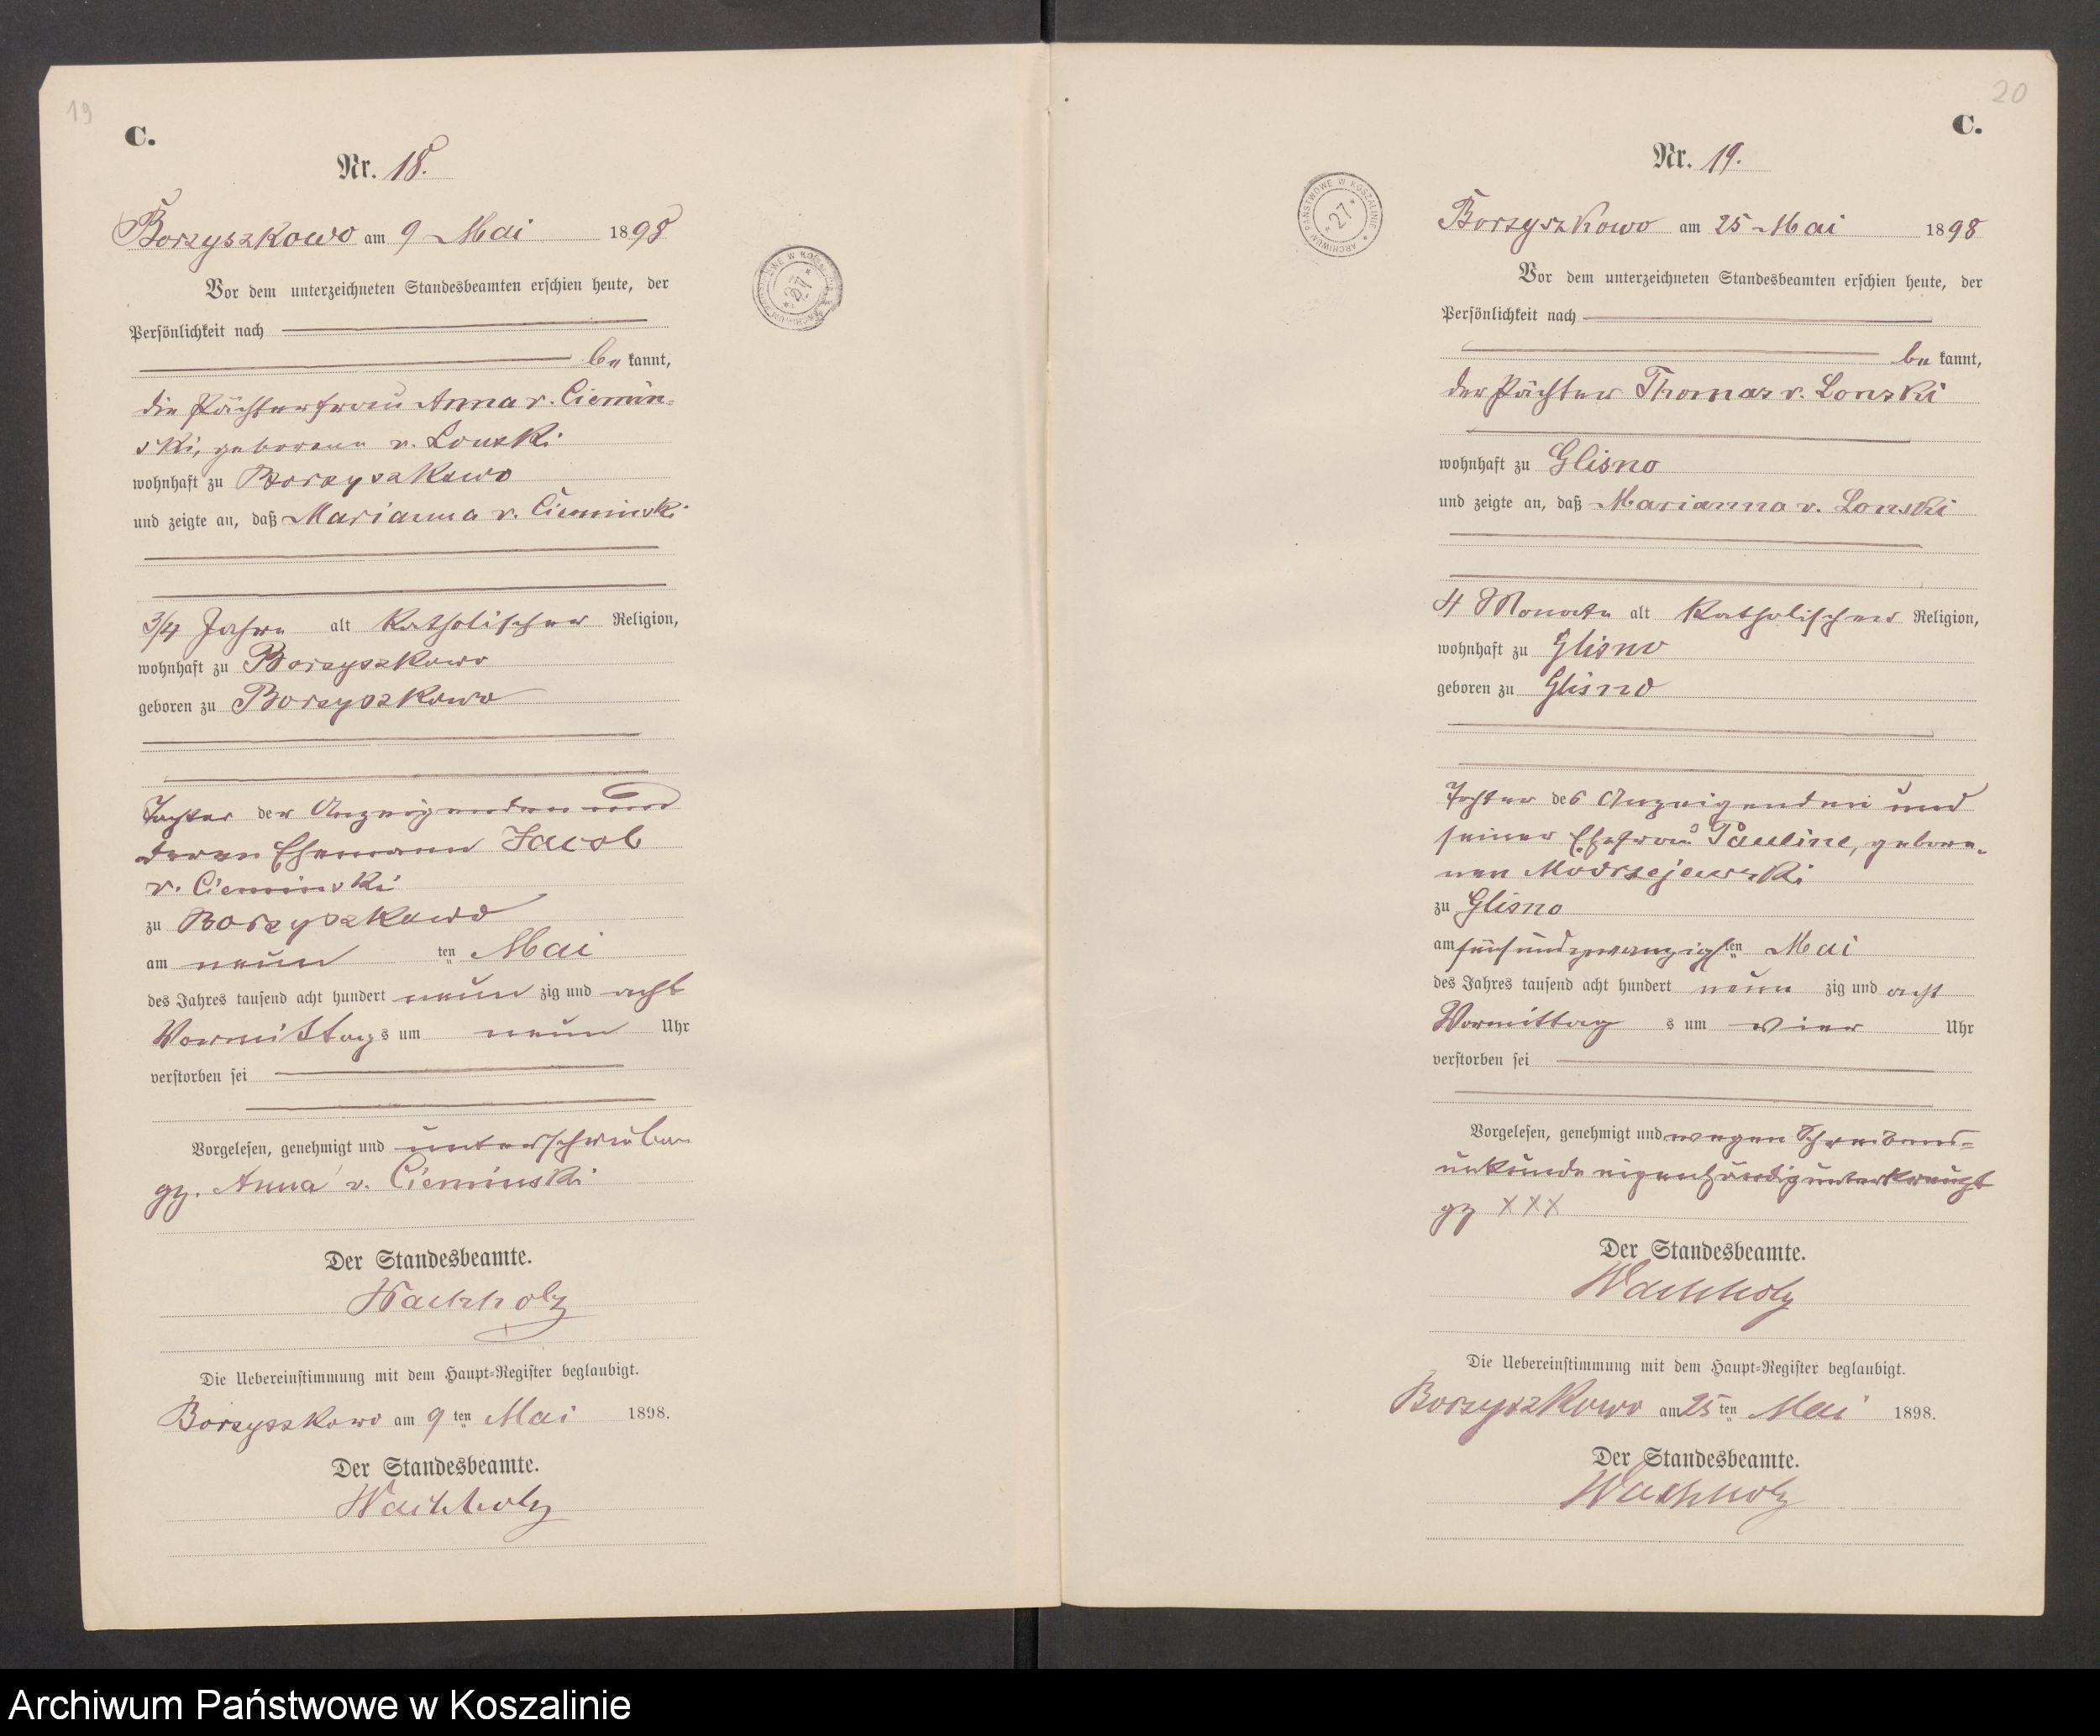 19
C.
Nr. 18.
Borzyszkowo am 9 Mai 1898
Vor dem unterzeichneten Standesbeamten erschien heute, der
Persönlichkeit nach
be kannt,
die Pächterfrau Anna v. Ciemin-
ski, geborene v. Lonski
wohnhaft zu Borzyszkowo
und zeigte an, daß Marianna v. Cieminski
3/4 Jahre alt katholischer Religion,
wohnhaft zu Borzyszkowo
geboren zu Borzyszkowo
Tochter der Anzeigenden und
deren Ehemann Jacob
v. Cieminski
zu Borzyszkowo
am neun ten Mai
des Jahres tausend acht hundert neun zig und acht
Vormittags um neun Uhr
verstorben sei
Vorgelesen, genehmigt und unterschrieben
gz. Anna v. Cieminski
Der Standesbeamte.
Wachholz
Die Uebereinstimmung mit dem Haupt-Register beglaubigt.
Borzyszkowo am 9 ten Mai 1898.
Der Standesbeamte.
Wachholz
ARCHIWUM PAŃSTWOWE W KOSZALINIE
* 27 *
20
C.
Nr. 19.
Borzyszkowo am 25 Mai 1898
Vor dem unterzeichneten Standesbeamten erschien heute, der
Persönlichkeit nach
be kannt,
der Pächter Thomas v. Lonski
wohnhaft zu Glisno
und zeigte an, daß Marianna v. Lonski
4 Monate alt katholischer Religion,
wohnhaft zu Glisno
geboren zu Glisno
Tochter des Anzeigenden und
seiner Ehefrau Pauline, gebore-
nen Modrzejewski
zu Glisno
am fünfundzwanzigsten Mai
des Jahres tausend acht hundert neun zig und acht
Vormittag s um vier Uhr
verstorben sei
Vorgelesen, genehmigt und wegen Schreibens-
unkunde eigenhändig unterkreuzt
gz XXX
Der Standesbeamte.
Wachholz
Die Uebereinstimmung mit dem Haupt-Register beglaubigt.
Borzyszkowo am 25 ten Mai 1898.
Der Standesbeamte.
Wachholz
ARCHIWUM PAŃSTWOWE W KOSZALINIE
* 27 *
Archiwum Państwowe w Koszalinie